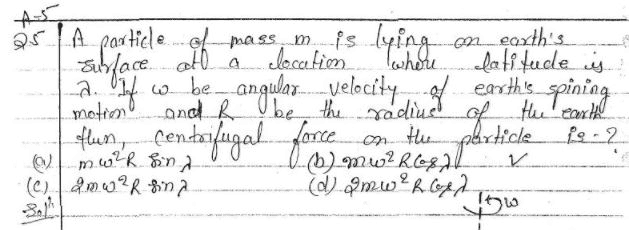 A-5
Q5 A particle of mass m is lying on earth's
surface at a location where latitude is
λ. If ω be angular velocity of earth's spining
motion and R be the radius of the earth
then, centrifugal force on the particle is -?
(a) mω²R sin λ (b) mω²R cos λ ✓
(c) 2mω²R sin λ (d) 2mω²R cos λ
Solⁿ ω